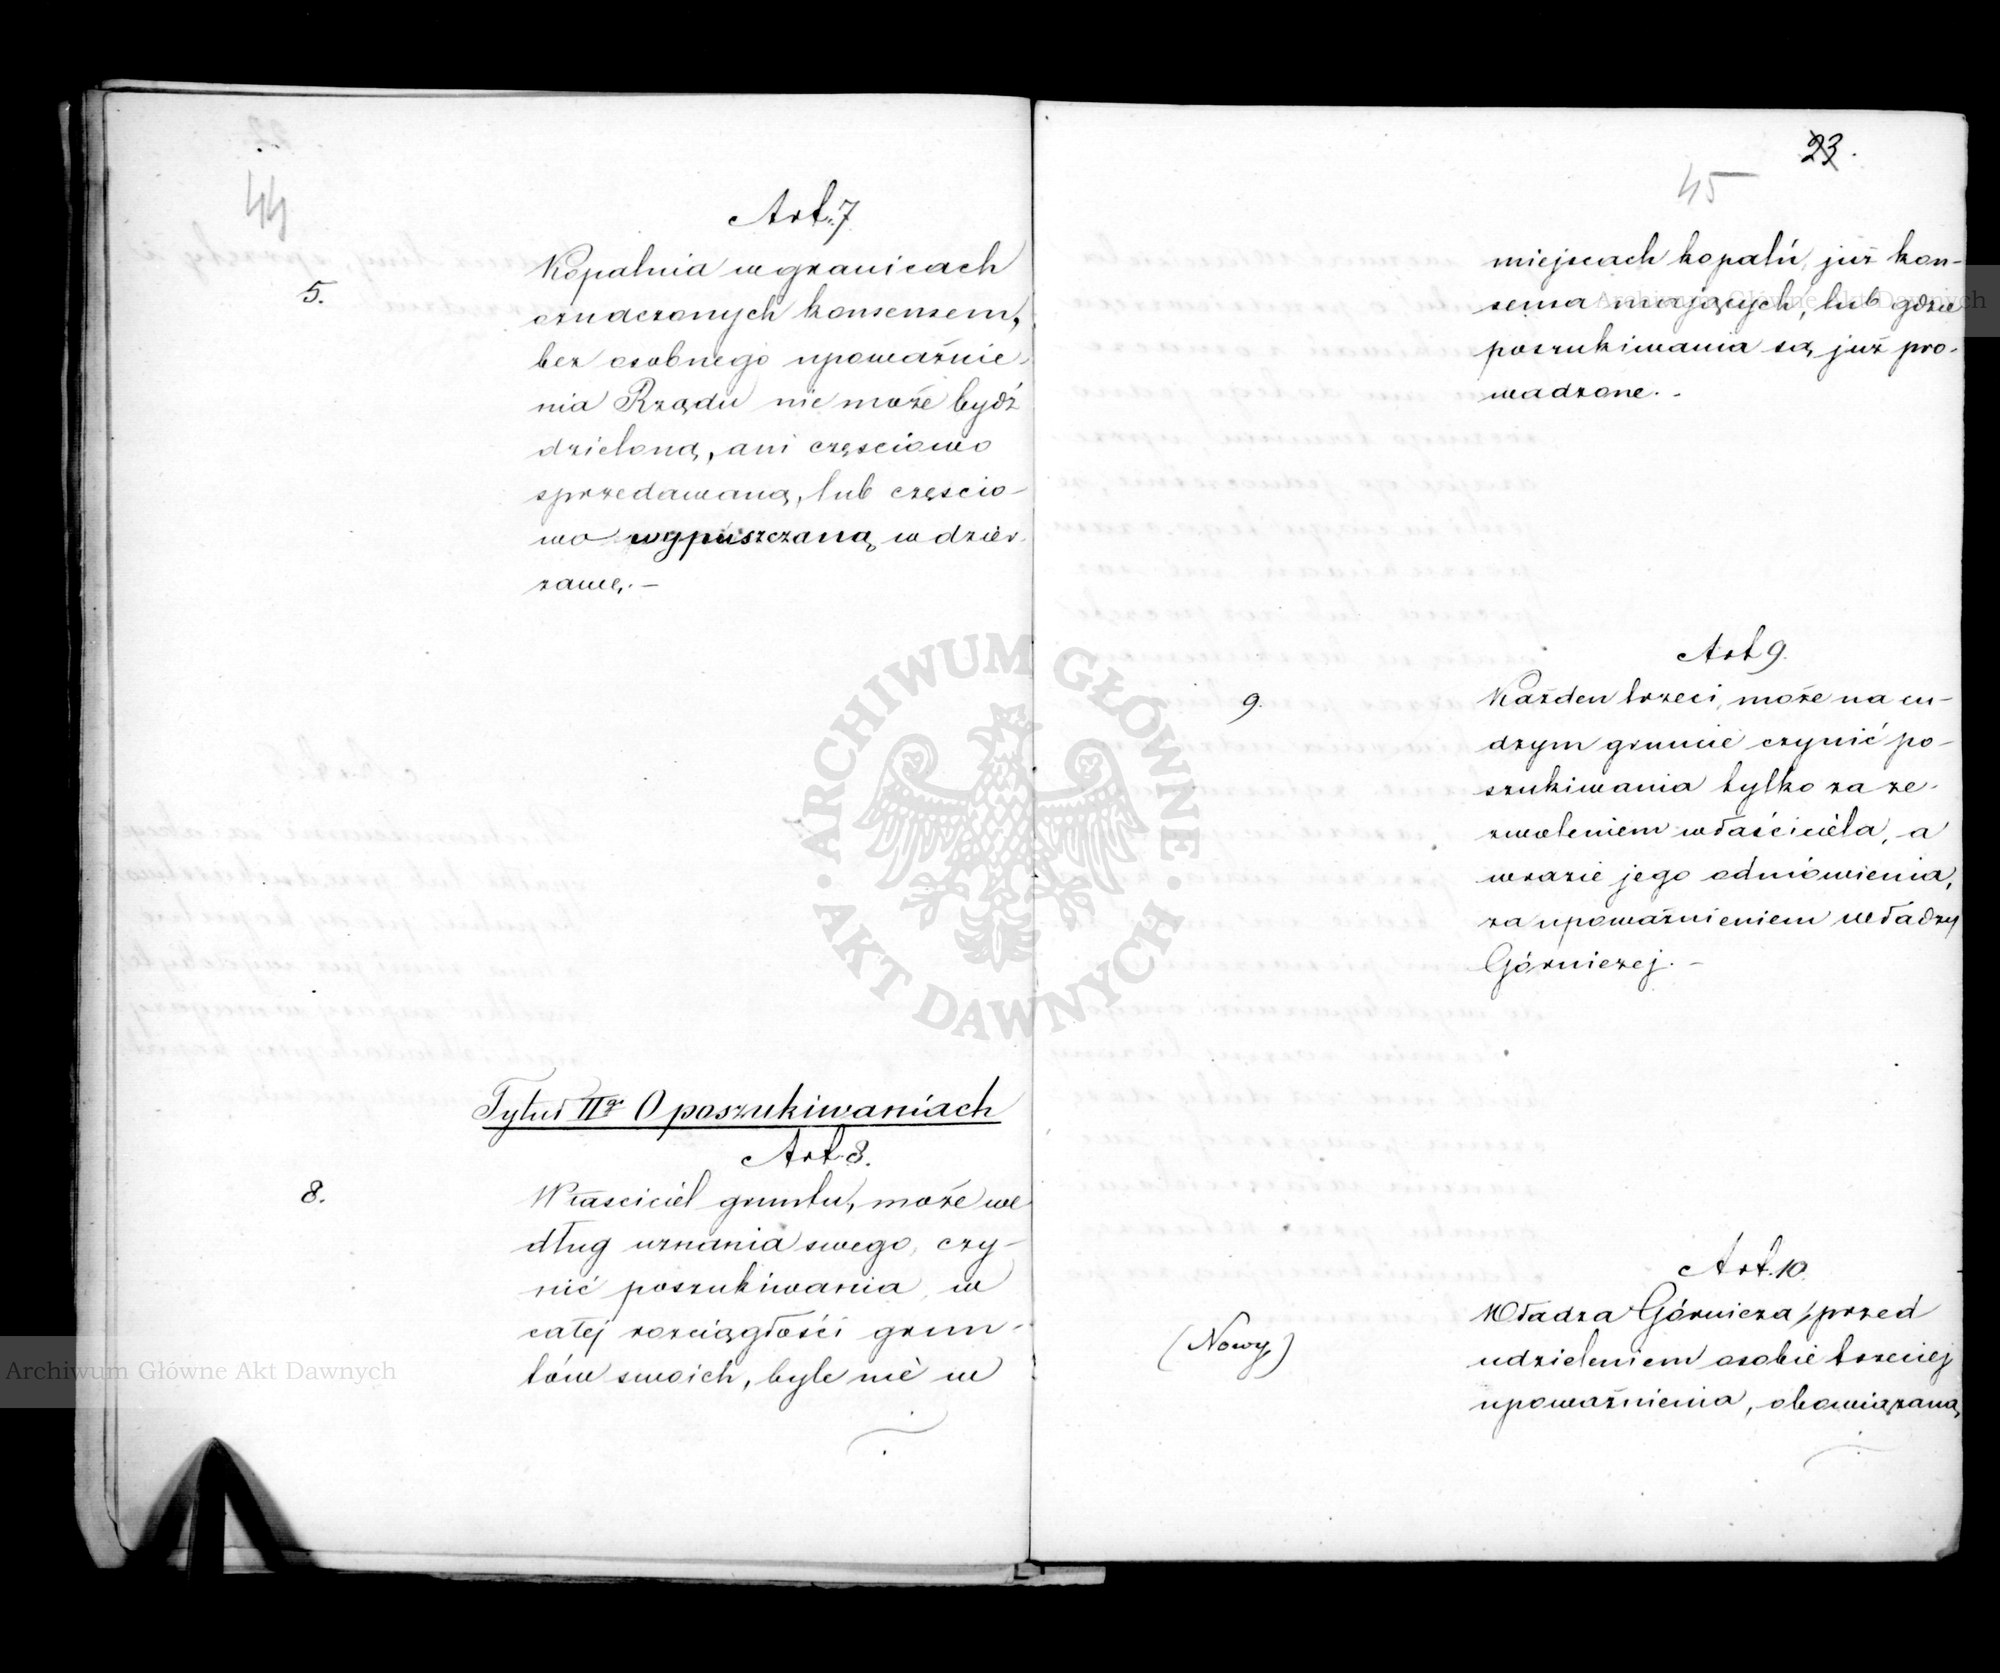 44
Art. 7
5.
Kopalnia w granicach
oznaczonych konsensem,
bez osobnego upoważnie-
nia Rządu nie może bydź
dzieloną, ani częsciowo
sprzedawaną, lub częscio-
wo wypuszczaną w dzier-
zawę. —
Tytuł IIgi O poszukiwaniach
Art. 8.
8.
Własciciel gruntu, może we
dług uznania swego, czy-
nić poszukiwania w
całej rozciągłości grun-
tów swoich, byle nie w
23.
45
miejscach kopalń, już kon-
sensa mających, lub gdzie
poszukiwania są już pro-
wadzone. -
Art 9.
9.
Każden trzeci, może na cu-
dzym gruncie czynić po-
szukiwania tylko za ze-
zwoleniem właściciela, a
wrazie jego odmówienia,
za upoważnieniem władzy
Górniczej. -
Art. 10.
(Nowy)
Władza Górnicza, przed
udzieleniem osobie trzeciej
upoważnienia, obowiązaną
ARCHIWUM GŁÓWNE
AKT DAWNYCH
Archiwum Główne Akt Dawnych
Archiwum Główne Akt Dawnych